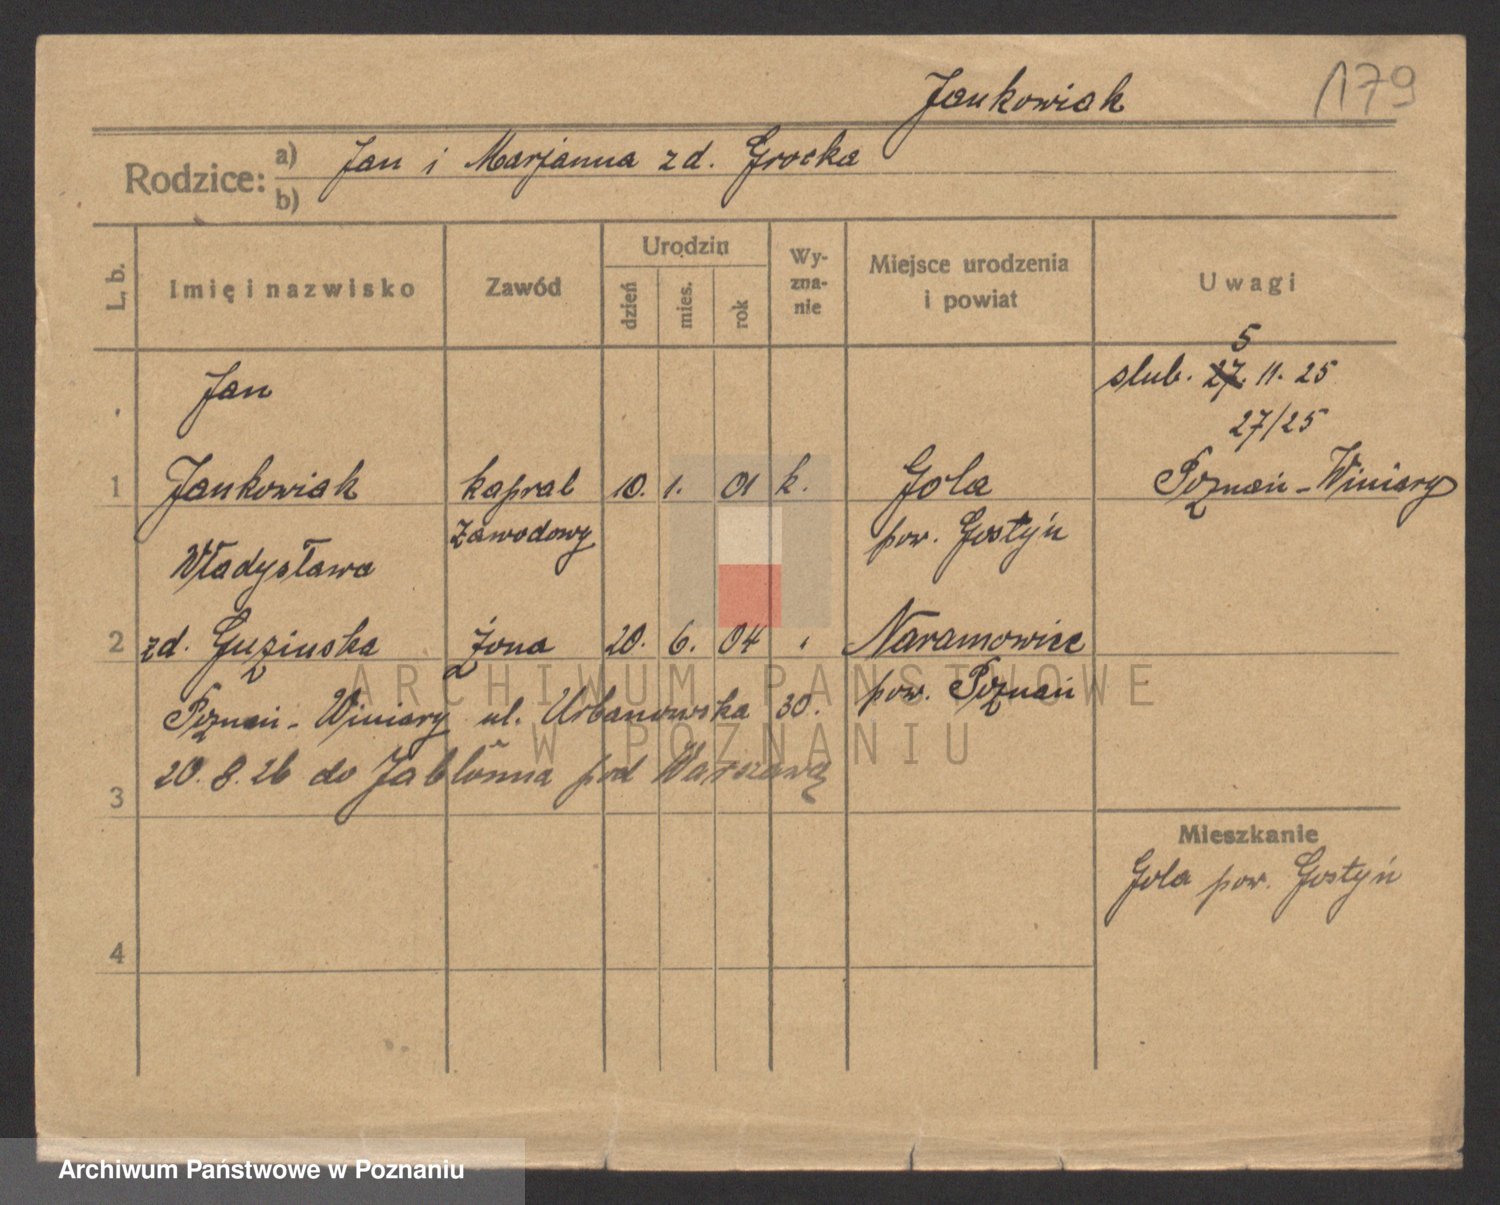 Jankowiak 179
Rodzice: a) Jan i Marjanna zd. Grocka
b)
L. b. Imię i nazwisko Zawód Urodzin dzień mies. rok Wyznanie Miejsce urodzenia i powiat Uwagi
Jan ślub. 27. 5 11. 25
27/25
1 Jankowiak kapral 10. 1. 01 k. Gola Poznań-Winiary
zawodowy pow. Gostyń
Władysława
2 zd. Guzińska Żona 20. 6. 04 " Naramowice
Poznań-Winiary ul. Urbanowska 30. pow. Poznań
20. 8. 26 do Jabłonna pod Warszawą
3
Mieszkanie
Gola pow. Gostyń
4
ARCHIWUM PAŃSTWOWE
W POZNANIU
Archiwum Państwowe w Poznaniu